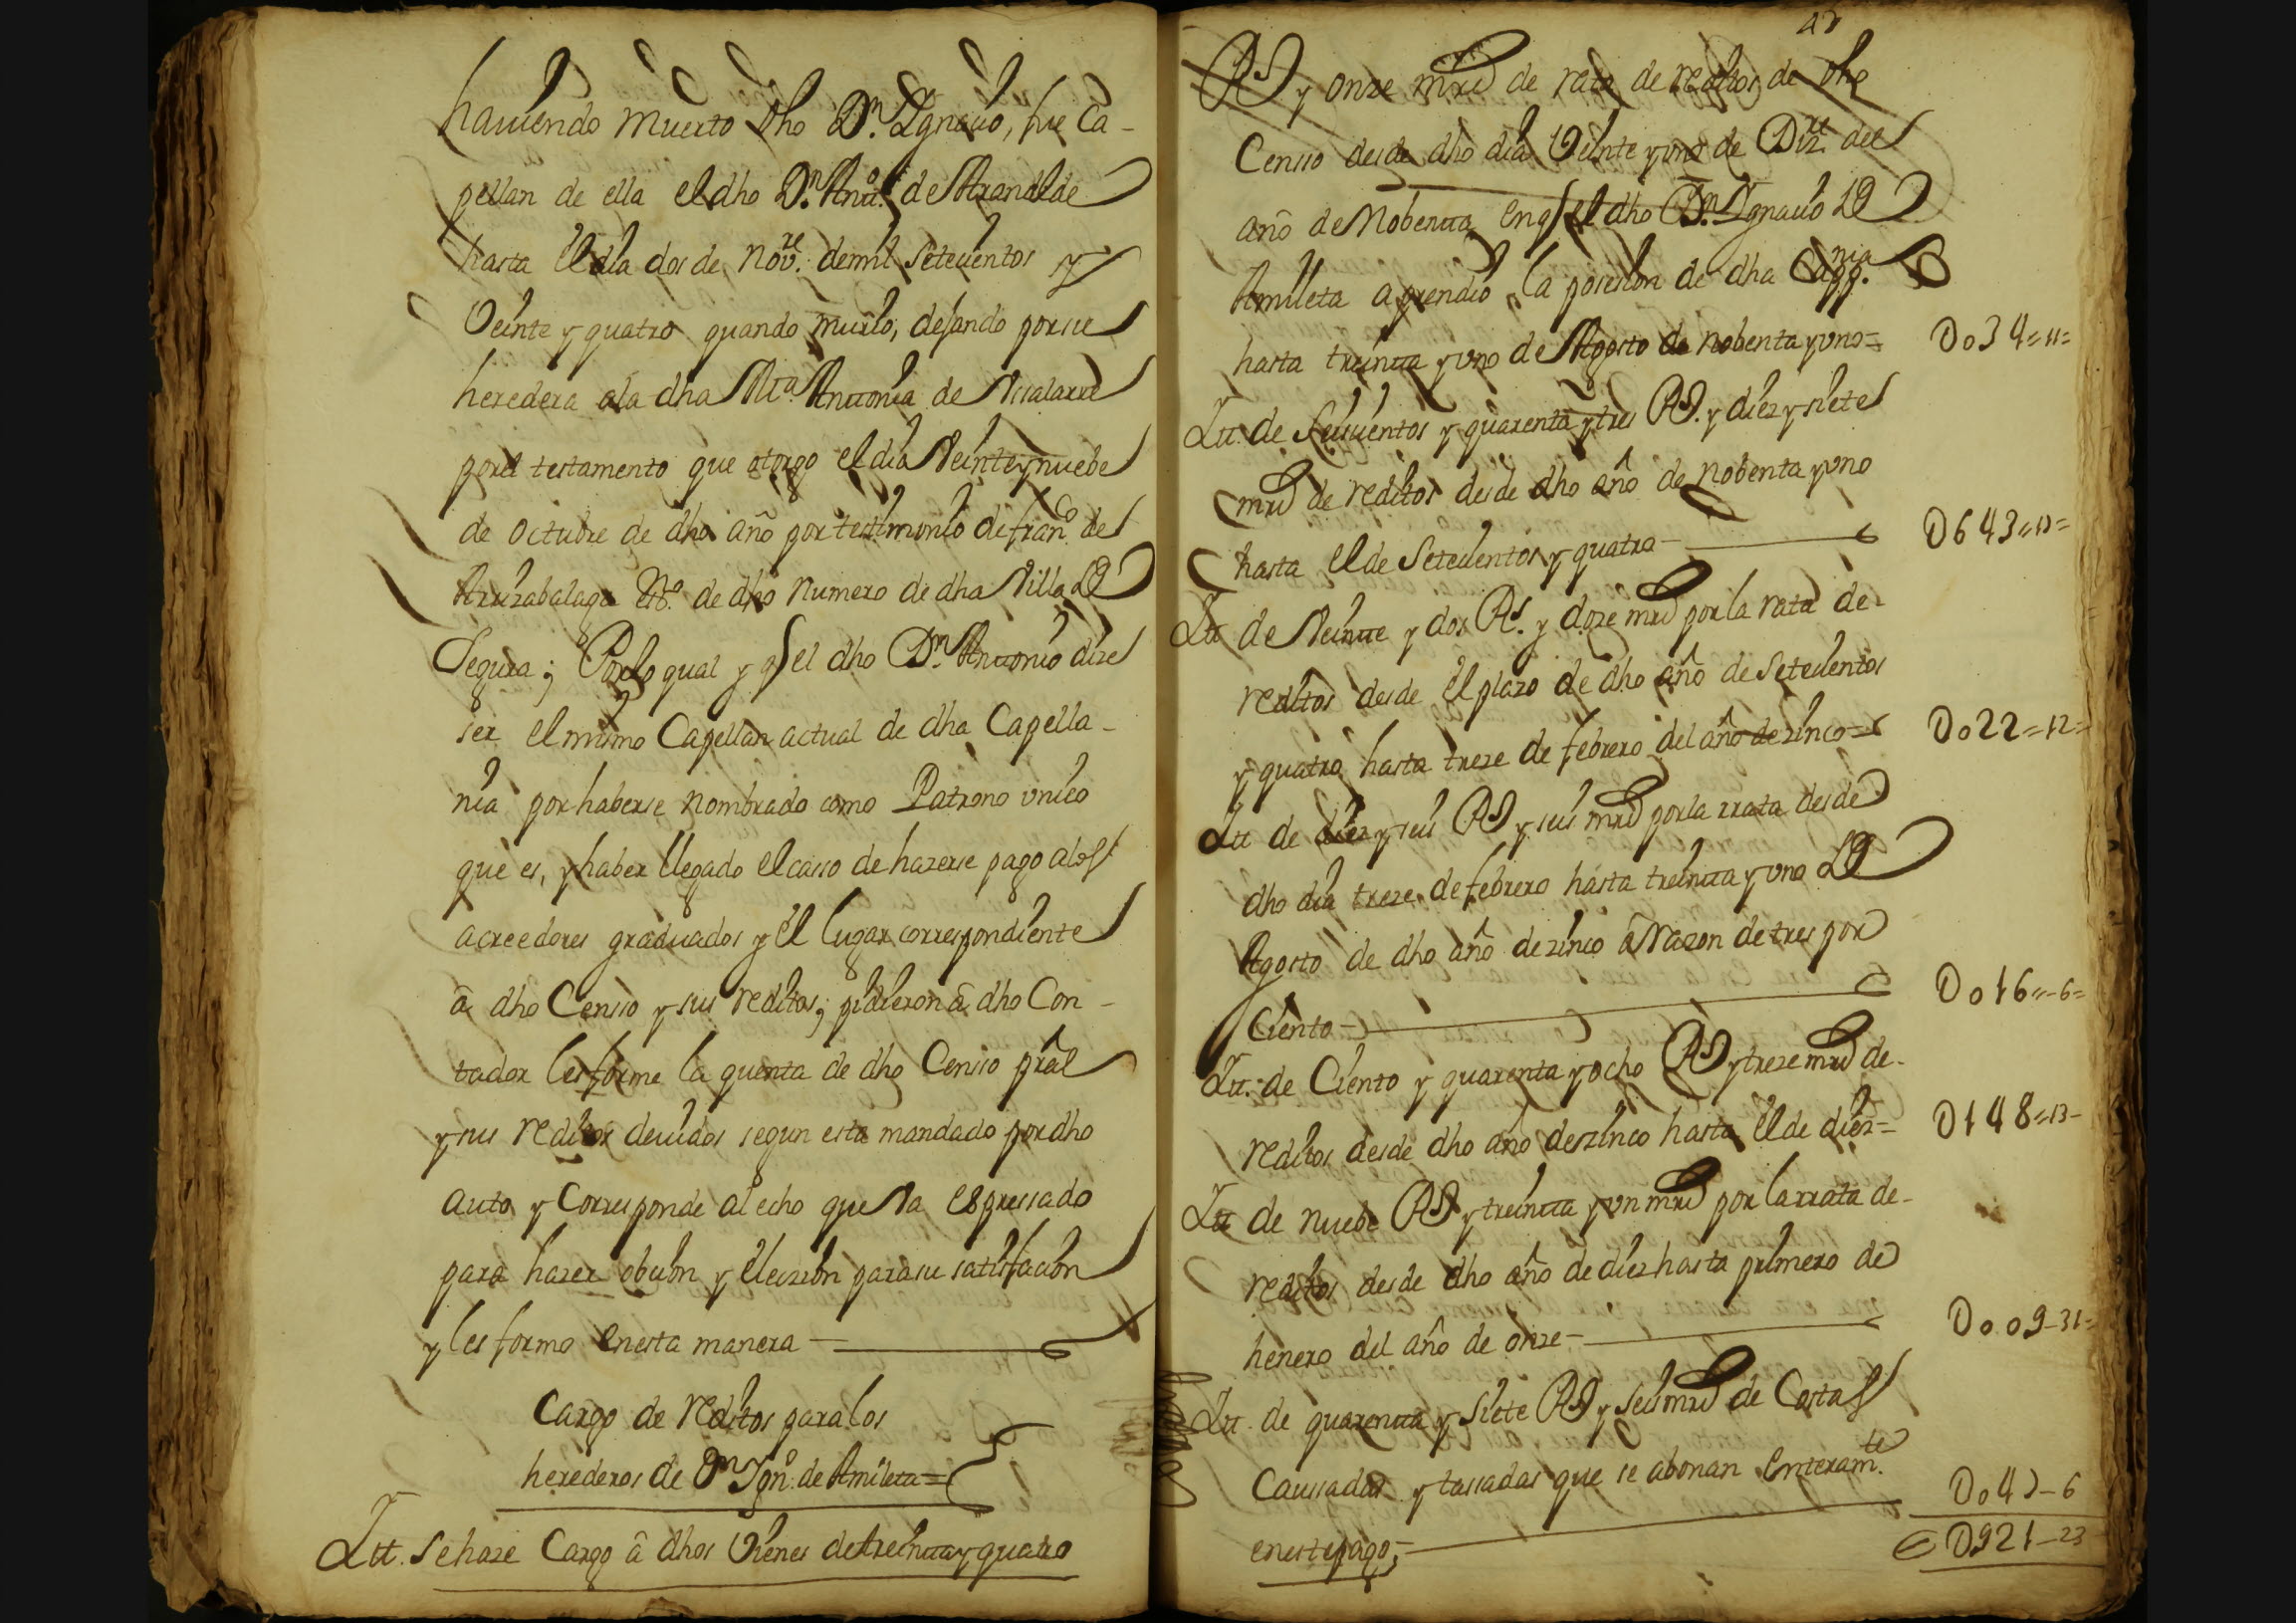 haviendo muerto dho Dn. Ygnacio, fue Ca-
pellan de ella el dho Dn. Anto. de Arandolde
hasta el dia dos de Novre. de mil setecientos y
Veinte y quatro quando murio, dejando por su
heredera ala dha Ma. Antonia de
por el testamento que otorgo el dia Veinte y nuebe
de octubre de dho año por testimonio de franco. de
Aruzabalaga no. de dho numero de dha Villa de
Segura; Por lo qual y q el dho Dn. Antonio dize
ser el mismo Capellan actual de dha Capella-
nia por haberse nombrado como Patrono unico
que es, y haber llegado el casso de hazerse pago alos
acreedores graduados y el lugar correspondiente
â dho Censso y sus reditos; pidieron â dho Con-
tador les forme la quenta de dho Censso pral
y sus reditos devidos segun esta mandado por dho
auto y Corresponde al echo que Va espressado
para hazer obcion y eleczion para su satisfacion
y les formo en esta manera —
Cargo de reditos para los
herederos de Dn Ygno. de Amileta =
Itt. Se haze Cargo â dhos Vienes de treinta y quatro
47
Rs y onze mrs de rata de reditos de dho
Censso desde dho dia Veinte y uno de Dizre. del
año de Nobenta en q el dho Dn. Ygnacio de
Amileta aprendio la posesion de dha Cappnia.
hasta treinta y uno de Agosto de nobenta y uno = D034=11=
Itt. de seiscientos y quarenta y tres Rs. y diez y siete
mrs de reditos desde dho año de nobenta y uno
hasta el de Setecientos y quatro — D643=17=
Itt de Veinte y dos Rs. y doze mrs por la rata de-
reditos desde el plazo de dho año de Setecientos
y quatro hasta treze de febrero del año de zinco = D022=12=
Itt de diez y seis Rs y seis mrs por la rrata desde
dho dia treze de febrero hasta treinta y uno de
Agosto de dho año de zinco â Razon de tres por
Ciento — D016=-6=
Itt. de Ciento y quarenta y ocho Rs y treze mrs de-
reditos desde dho año de zinco hasta el de diez = D148=13-
Itt de nuebe Rs y treinta y un mrs por la rrata de-
reditos desde dho año de diez hasta primero de
henero del año de onze — D009-31=
Itt. de quarenta y siete Rs y seis mrs de Costas
Caussadas y tassadas que se abonan enteramte.
en este pago; — D047-6
D921-23